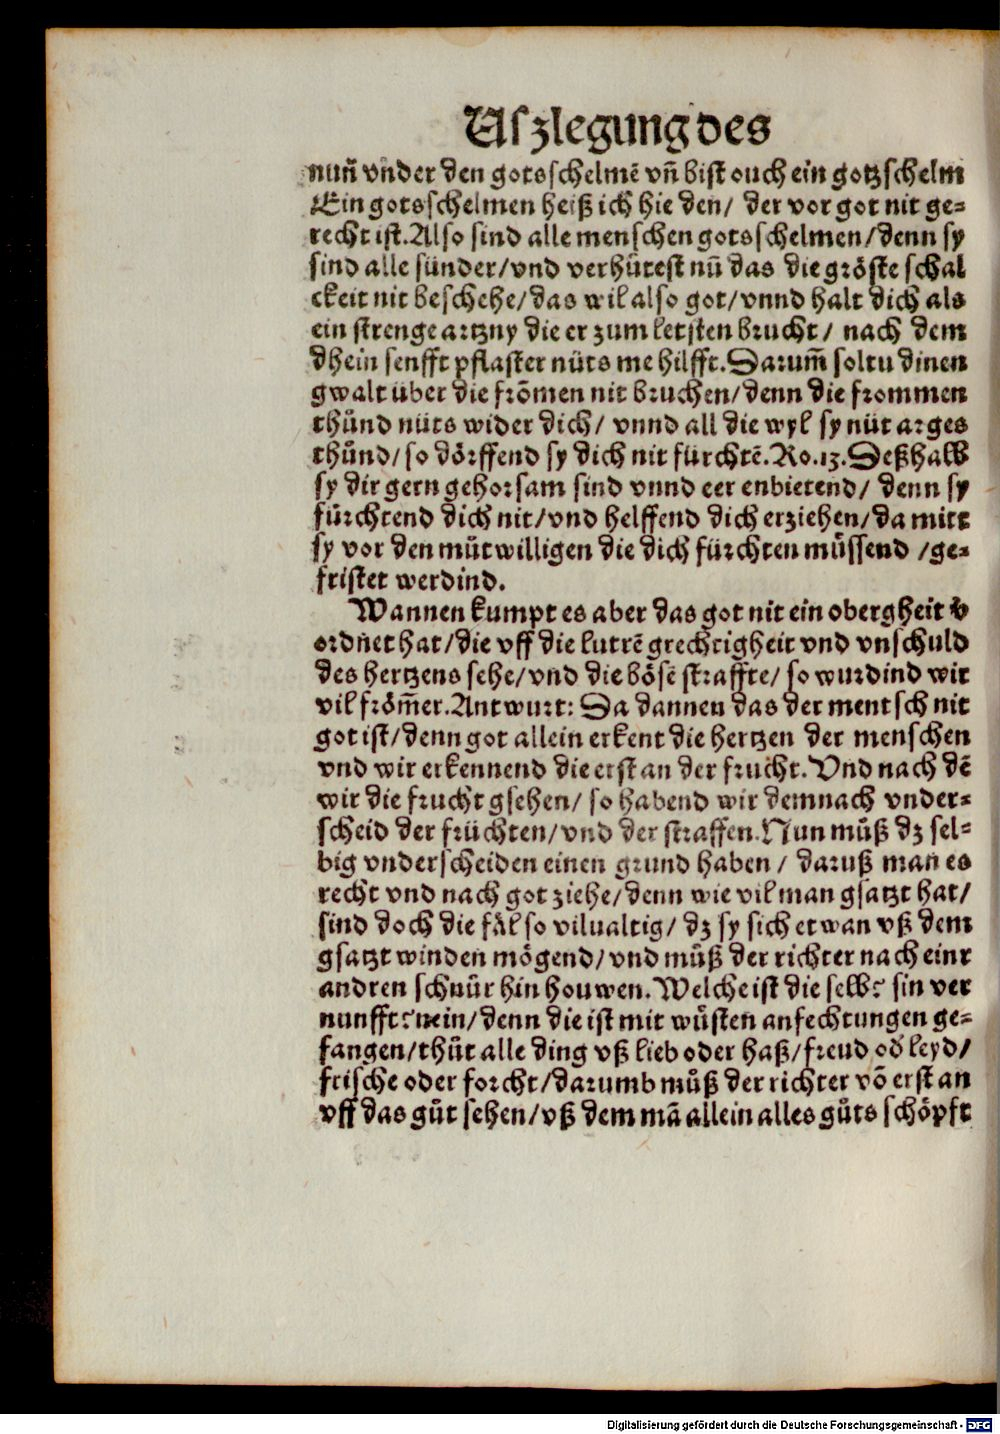 Uszlegung des
nun̄ vnder den gotsschelmē vn̄ bist ouch ein gotzschelm
Ein gotsschelmen heiß ich hie den/ der vor got nit ge⸗
recht ist. Also sind alle menschen gotsschelmen/denn sy
sind alle sünder/vnd verhůtest nū das die gröste schal
ckeit nit beschehe/das wil also got/vnnd halt dich als
ein strenge artzny die er zum letsten brucht/ nach dem
dhein senfft pflaster nüts me hilfft. Darum̄ soltu dinen
gwalt über die frōmen nit bruchen/denn die frommen
thůnd nüts wider dich/ vnnd all die wyl sy nüt arges
thůnd/so dörffend sy dich nit fürchtē. Ro.13. Deßhalb
sy dir gern gehorsam sind vnnd eer enbietend/ denn sy
fürchtend dich nit/vnd helffend dich erziehen/da mitt
sy vor den můtwilligen die dich fürchten müssend /ge⸗
fristet werdind.
Wannen kumpt es aber das got nit ein obergheit v̄
ordnet hat/die vff die lutrē grechtigheit vnd vnschuld
des hertzens sehe/vnd die bösē straffte/ so wurdind wir
vil fröm̄er. Antwurt: Da dannen das der mentsch nit
got ist/denn got allein erkent die hertzen der menschen
vnd wir erkennend die erst an der frucht. Vnd nach dē
wir die frucht gsehen/ so habend wir demnach vnder⸗
scheid der früchten/vnd der straffen. Nun můß dz sel⸗
big vnderscheiden einen grund haben/ daruß man es
recht vnd nach got ziehe/denn wie vil man gsatzt hat/
sind doch die fäl so vilualtig/ dz sy sich etwan vß dem
gsatzt winden mögend/vnd můß der richter nach einr
andren schnůr hin houwen. Welche ist die selb? sin ver
nunfft? nein/denn die ist mit wůsten anfechtungen ge⸗
fangen/thůt alle ding vß lieb oder haß/freud od̄ leyd/
frische oder forcht/darumb můß der richter vō erst an
vff das gůt sehen/vß dem mā allein alles gůts schöpft
Digitalisierung gefördert durch die Deutsche Forschungsgemeinschaft - DFG